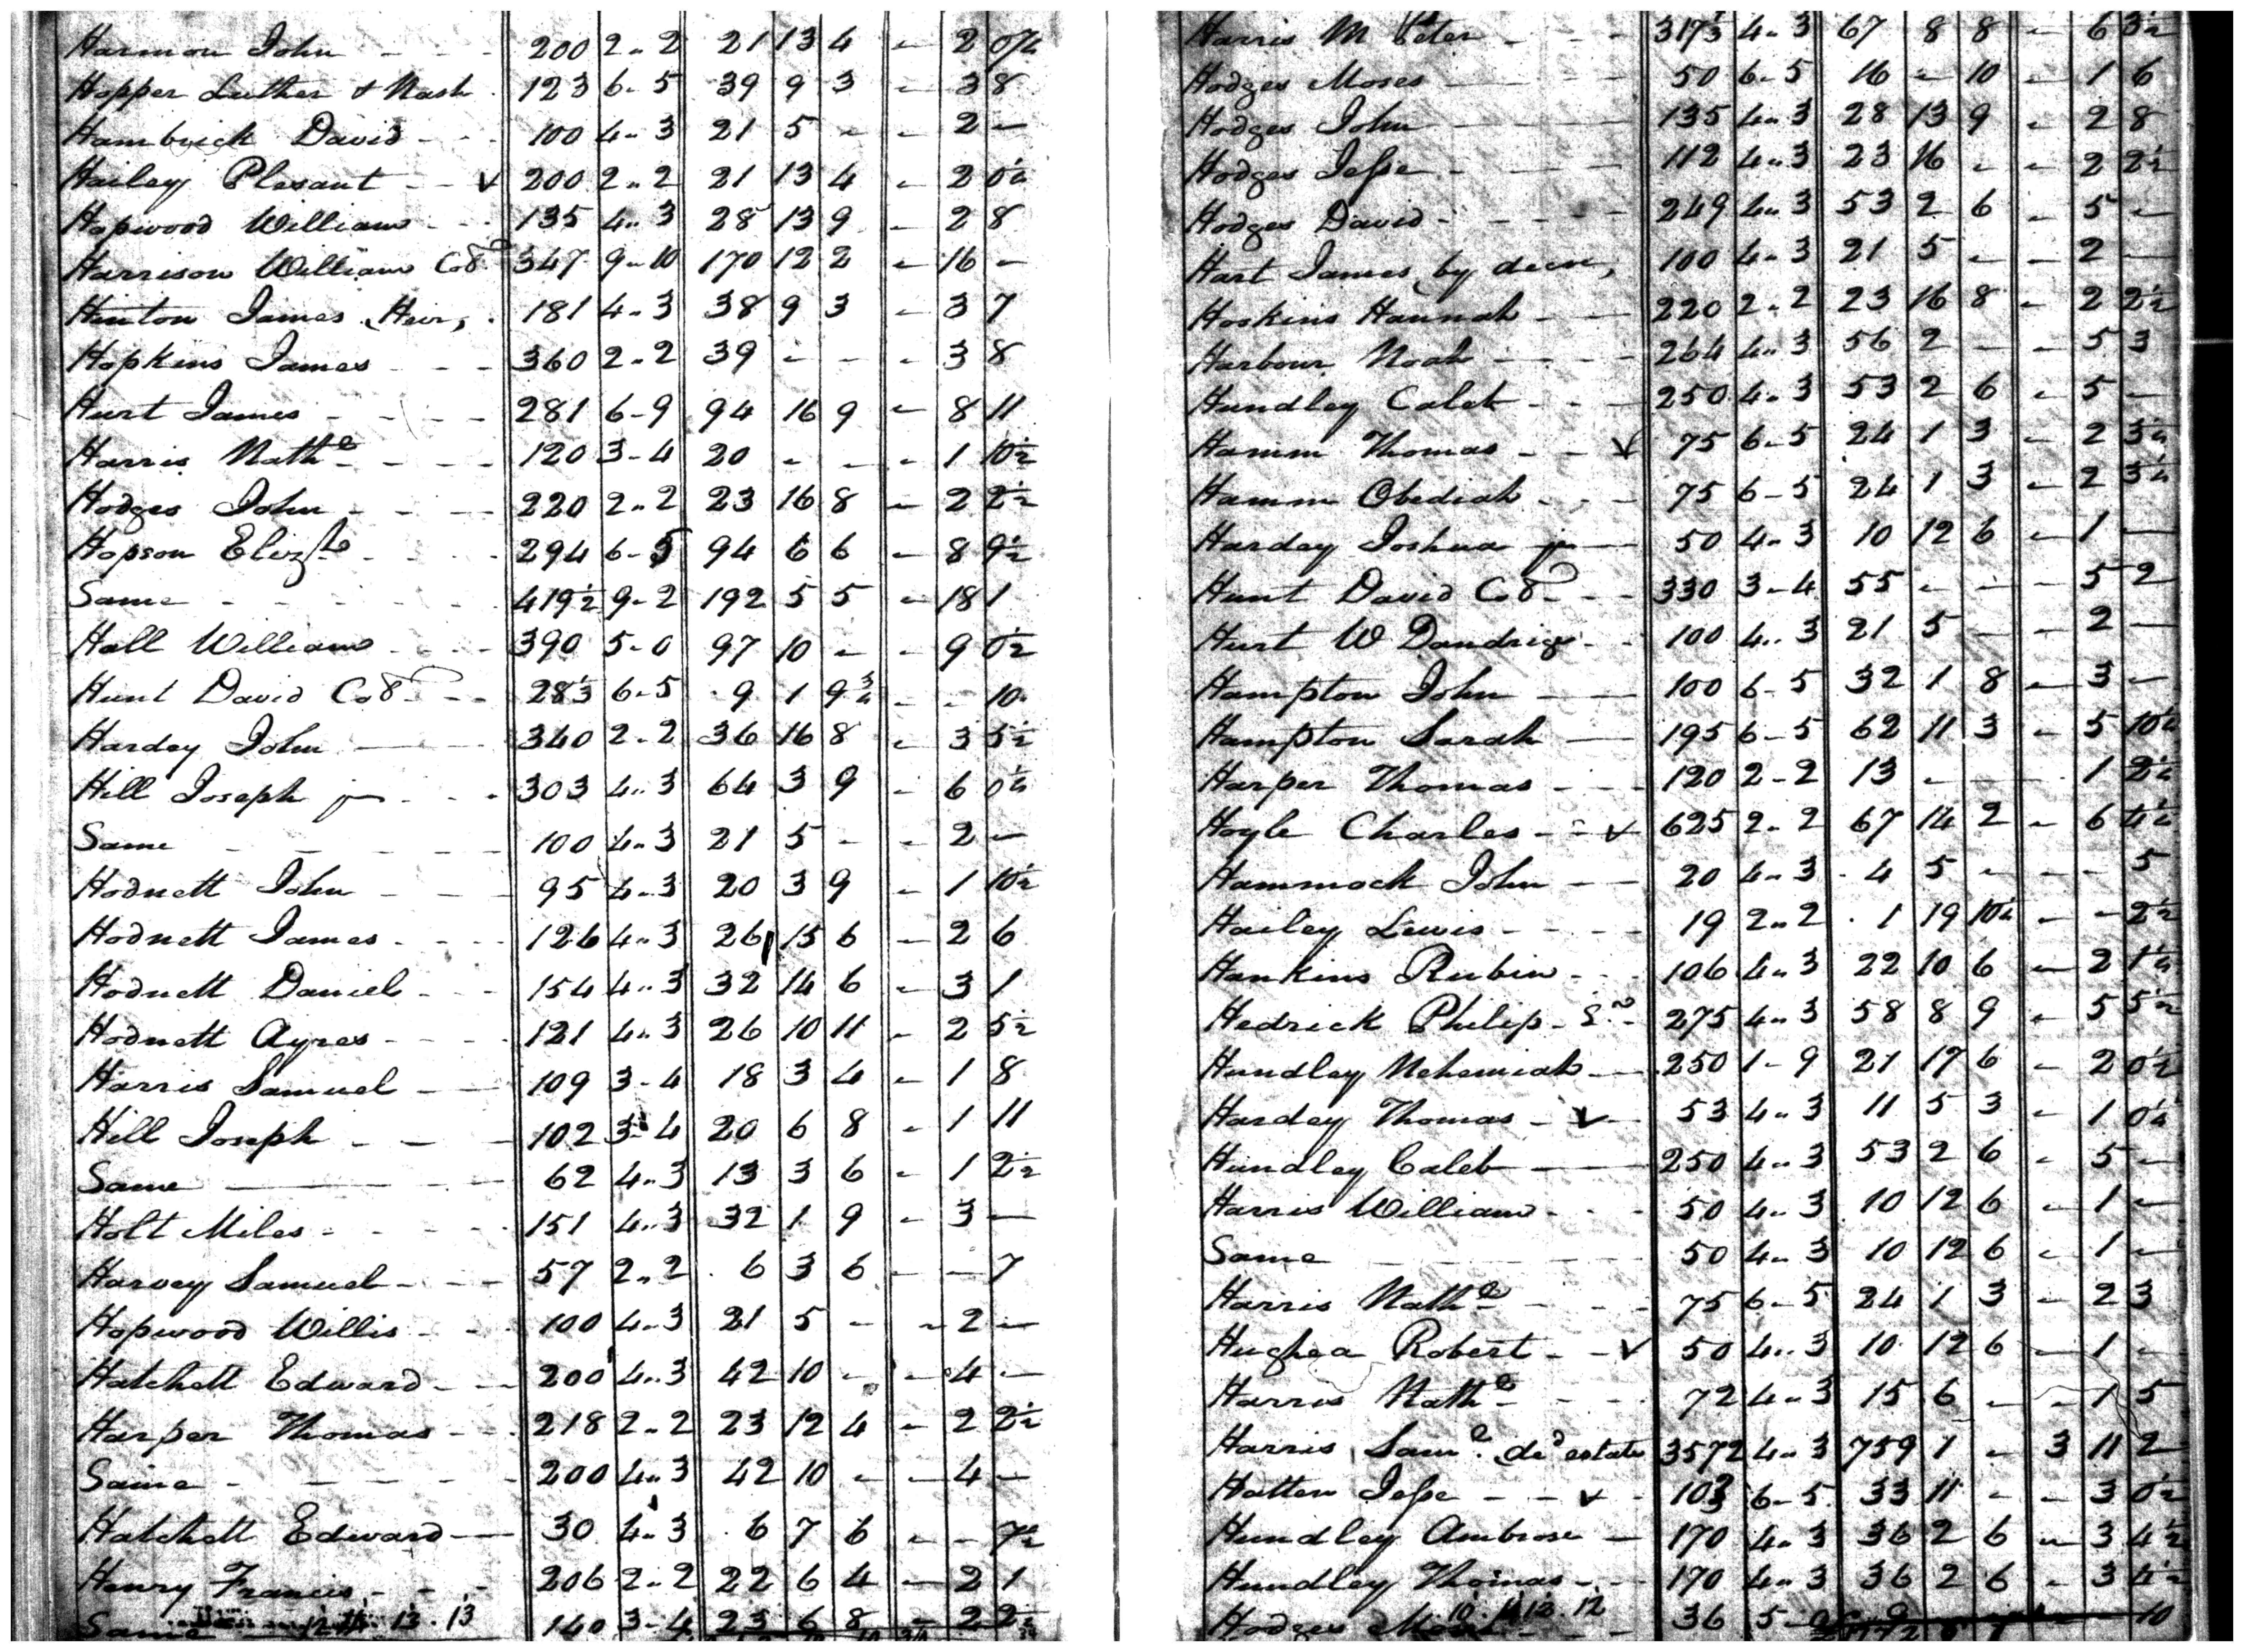 Harmon John - - - 200 2 . . 2 21 13 4 - 2 0¼
Hopper Luther & Nash . 123 6 - 5 39 9 3 - 3 8
Hambrick David - - - 100 4 . . 3 21 5 - - 2 -
Hailey Plesant - - v 200 2 . . 2 21 13 4 - 2 0½
Hopwood William - - - 135 4 . . 3 28 13 9 - 2 8
Harrison William Col 347 9 - 10 170 12 2 - 16 -
Hinton James Heirs . 181 4 - 3 38 9 3 - 3 7
Hopkins James - - - 360 2 - 2 39 - - - 3 8
Hurt James - - - - 281 6 - 9 94 16 9 - 8 11
Harris Nathl - - - 120 3 - 4 20 - - - 1 10½
Hodges John - - - 220 2 . . 2 23 16 8 - 2 2½
Hopson Elizth - - - 294 6 - 5 94 6 6 - 8 9½
Same - - - - - - 419½ 9 - 2 192 5 5 - 18 1
Hall William - - - 390 5 - 0 97 10 - - 9 0½
Hunt David Col - - 28⅓ 6 - 5 9 1 9¾ - - 10
Harday John - - 340 2 - 2 36 16 8 - 3 5½
Hill Joseph jr - - - 303 4 . . 3 64 3 9 - 6 0½
Same - - - - - 100 4 . . 3 21 5 - - 2 -
Hodnett John - - - 95 4 . . 3 20 3 9 - 1 10½
Hodnett James - - - 126 4 . . 3 26 15 6 - 2 6
Hodnett Daniel - - - 154 4 . . 3 32 14 6 - 3 1
Hodnett Ayres - - - 121 4 . . 3 26 10 11 - 2 5½
Harris Samuel - - 109 3 - 4 18 3 4 - 1 8
Hill Joseph - - - 102 3 - 4 20 6 8 - 1 11
Same - - - - 62 4 . . 3 13 3 6 - 1 2½
Holt Miles - - - - 151 4 . . 3 32 1 9 - 3 -
Harvey Samuel - - - 57 2 . . 2 6 3 6 - - 7
Hopwood Willis - - 100 4 . . 3 21 5 - - 2 -
Hatchett Edward - - 200 4 . . 3 42 10 - - 4 -
Harper Thomas - - 218 2 - 2 23 12 4 - 2 2½
Same - - - - - 200 4 . . 3 42 10 - - 4 -
Hatchett Edward - 30 4 . . 3 6 7 6 - - 7½
Henry Francis - - - 206 2 . . 2 22 6 4 - 2 1
Same 13 . 13 140 3 - 4 23 6 8 - 2 2½
Harris M Peter - - - 317⅓ 4 . . 3 67 8 8 - 6 3½
Hodges Moses - - 50 6 - 5 16 - 10 - 1 6
Hodges John - - - 135 4 . . 3 28 13 9 - 2 8
Hodges Jesse - - - 112 4 . . 3 23 16 - - 2 2½
Hodges David - - - - 249 4 . . 3 53 2 6 - 5 -
Hart James by 100 4 . . 3 21 5 - - 2 -
Hoskins Hannah - - 220 2 . . 2 23 16 8 - 2 2½
Harbour Noah - - - - 264 4 . . 3 56 2 - - 5 3
Hundley Caleb - - - 250 4 . . 3 53 2 6 - 5 -
Hamm Thomas - - v 75 6 - 5 24 1 3 - 2 3¼
Hamm Obediah - - - 75 6 - 5 24 1 3 - 2 3¼
Harday Joshua jr - 50 4 . . 3 10 12 6 - 1 -
Hunt David Col - - 330 3 - 4 55 - - - 5 2
Hurt W Dandrige - - 100 4 . . 3 21 5 - - 2 -
Hampton John - - 100 6 - 5 32 1 8 - 3 -
Hampton Sarah - 195 6 - 5 62 11 3 - 5 10½
Harper Thomas - - - 120 2 - 2 13 - - - 1 2½
Hoyle Charles - - v 625 2 . . 2 67 14 2 - 6 4½
Hammock John - - 20 4 . . 3 4 5 - - - 5
Hailey Lewis - - - - 19 2 . . 2 1 19 10½ - - 2½
Hankins Rubin - - - 106 4 . . 3 22 10 6 - 2 1½
Hedrick Philip - Sr - 275 4 . . 3 58 8 9 - 5 5½
Hundley Nehemiah - - 250 1 - 9 21 17 6 - 2 0½
Harday Thomas - v - 53 4 . . 3 11 5 3 - 1 0¼
Hundley Caleb - - 250 4 . . 3 53 2 6 - 5 -
Harris William - - - 50 4 . . 3 10 12 6 - 1 -
Same - - - - 50 4 . . 3 10 12 6 - 1 -
Harris Nathl - - - - 75 6 - 5 24 1 3 - 2 3
Hughea Robert - - v 50 4 . . 3 10 12 6 - 1 -
Harris Nathl - - - - 72 4 . . 3 15 6 - - 1 5
Harris Saml ded estate 3572 4 . . 3 759 1 - 3 11 2
Hatten Jesse - - v - 103 6 - 5 33 11 - - 3 0½
Hundley Ambrose - 170 4 . . 3 36 2 6 - 3 4½
Hundley Thomas - - 170 4 . . 3 36 2 6 - 3 4½
Hodges 36 5 10